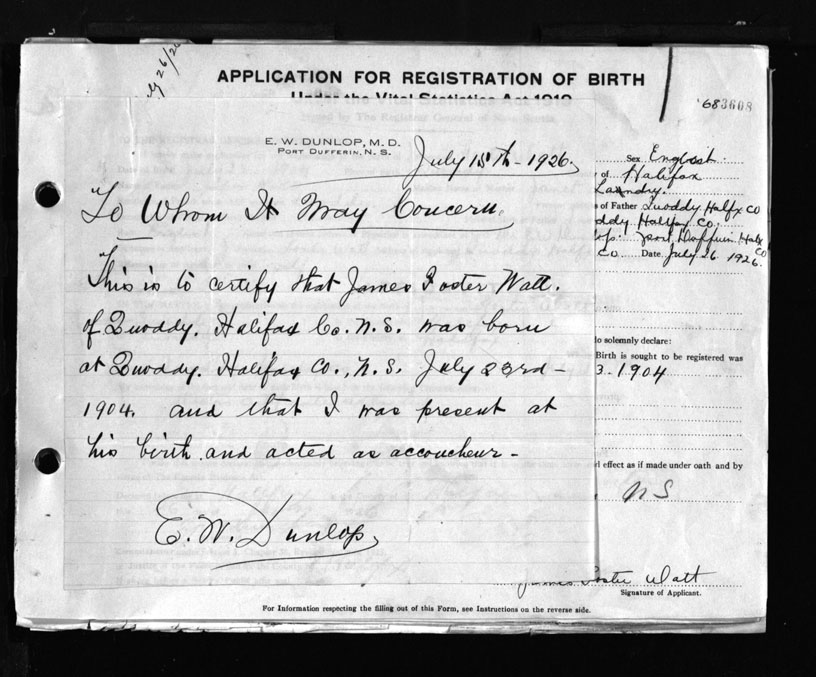 APPLICATION FOR REGISTRATION OF BIRTH
Under the Vital Statistics Act 1919
683608
E. W. DUNLOP, M.D.
PORT DUFFERIN, N. S.
July 15th - 1926.
"To Whom It May Concern,
"This is to certify that James Foster Watt.
of Quoddy. Halifax Co. N.S. was born
at Quoddy. Halifax Co., N.S. July 23rd -
1904. and that I was present at
his birth. and acted as accoucheur -
E. W. Dunlop,
Sex
of Halifax
of Father Quoddy Halfx Co
ddy Halfax Co.
Port Dufferin Halx
Co Date July 26 1926.
Co
to solemnly declare:
Birth is sought to be registered was
3. 1904
effect as if made under oath and by
NS
James Foster Watt
Signature of Applicant.
For Information respecting the filling out of this Form, see Instructions on the reverse side.